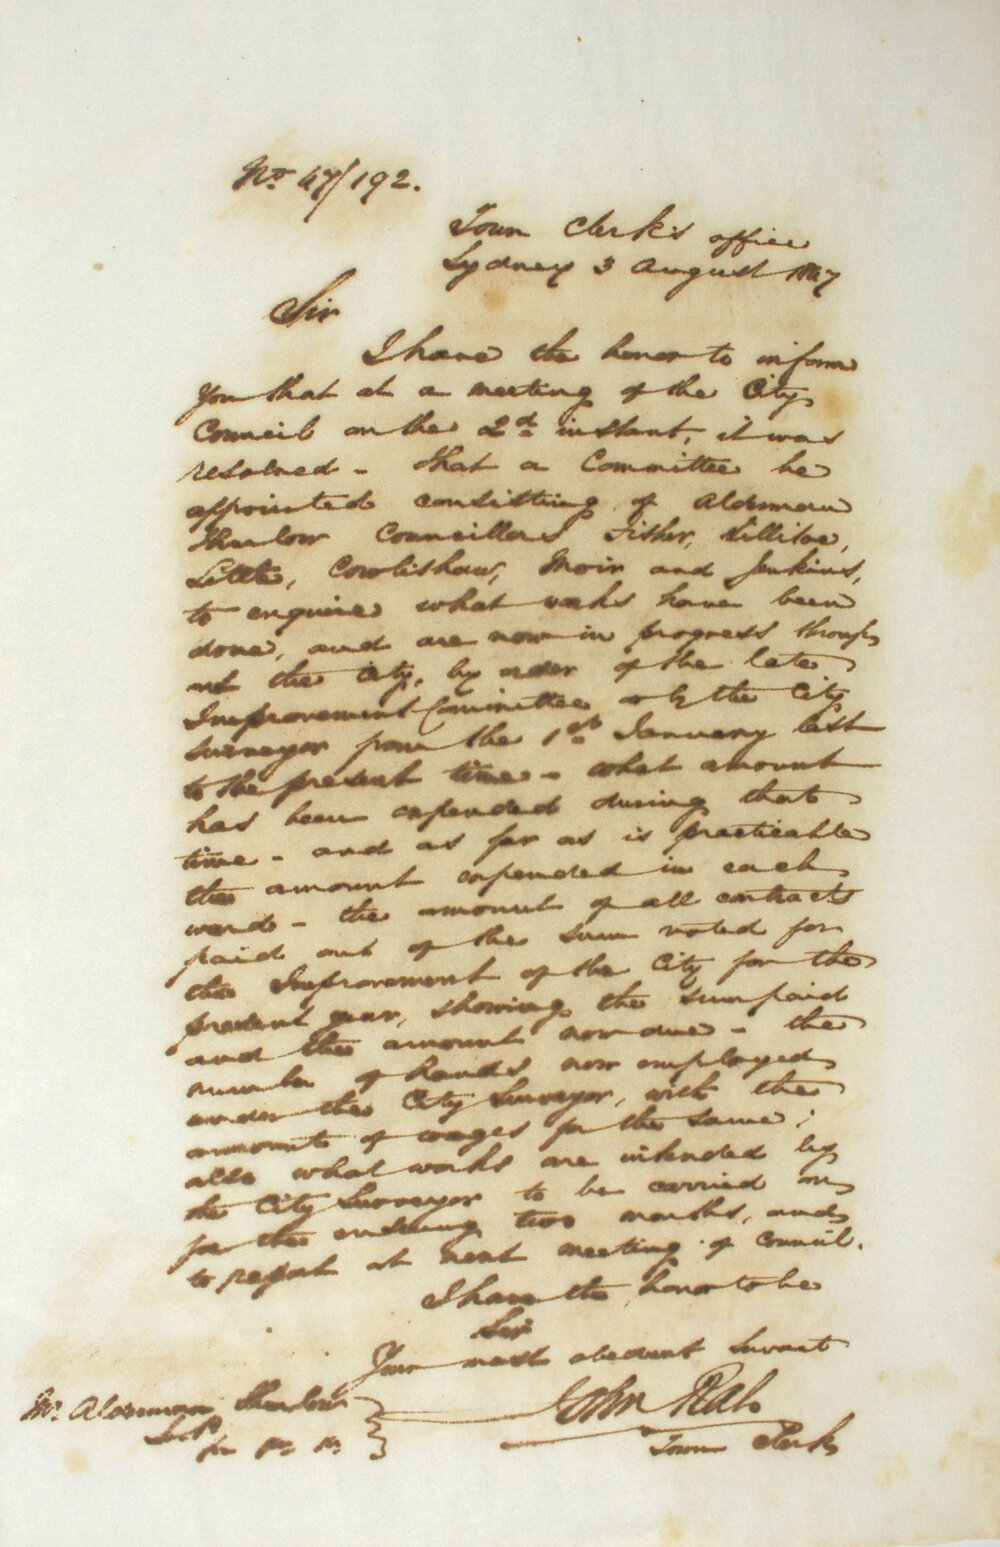 No. 47/192.
Town Clerk's office
Sydney 3 August 1847
Sir
I have the honor to inform
you that at a meeting of the City
Council on the 2d instant, it was
resolved - that a Committee be
appointed consisting of Alderman
Thurlow Councillors Fisher, Hillitoe,
Little, Cowlishaw, Moir and Jenkins,
to enquire what works have been
done, and are now in progress through
out the City, by order of the late
Improvement Committee or by the City
Surveyor from the 1st January last
to the present time - what amount
has been expended during that
time - and as far as is practicable
the amount expended in each
ward - the amount of all contracts
paid out of the sum voted for
the Improvement of the City for the
present year, showing the sum paid
and the amount now due - the
number of hands now employed
under the City Surveyor, with the
amount of wages for the same;
also what works are intended by
the City Surveyor to be carried on
for the ensuing two months, and
to report at next meeting of Council.
I have the honor to be
Sir
Your most obedient Servant
John Rae
Town Clerk
Mr. Alderman Thurlow